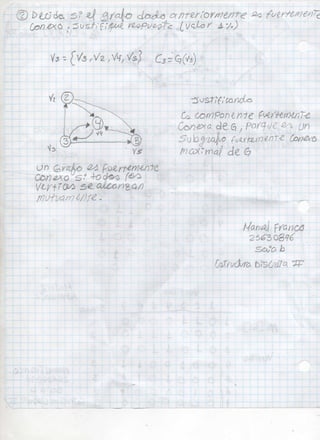 ② Decida si el grafo dado anteriormente es fuertemente
Conexo. Justifique respuesta (Valor 1%)
V3 = {V3, V2, V4, V5} C3 = G(V3)
V2 2
4
V4
3
V3
5
V5
Justificando
C3 componente fuertemente
Conexa de G, porque es un
Subgrafo fuertemente Conexo
maximal de G
Un Grafo es fuertemente
Conexo si todos los
Vertices se alcanzan
mutuamente.
Manuel Franco
25630896
Saia b
Estrutura Discreta II